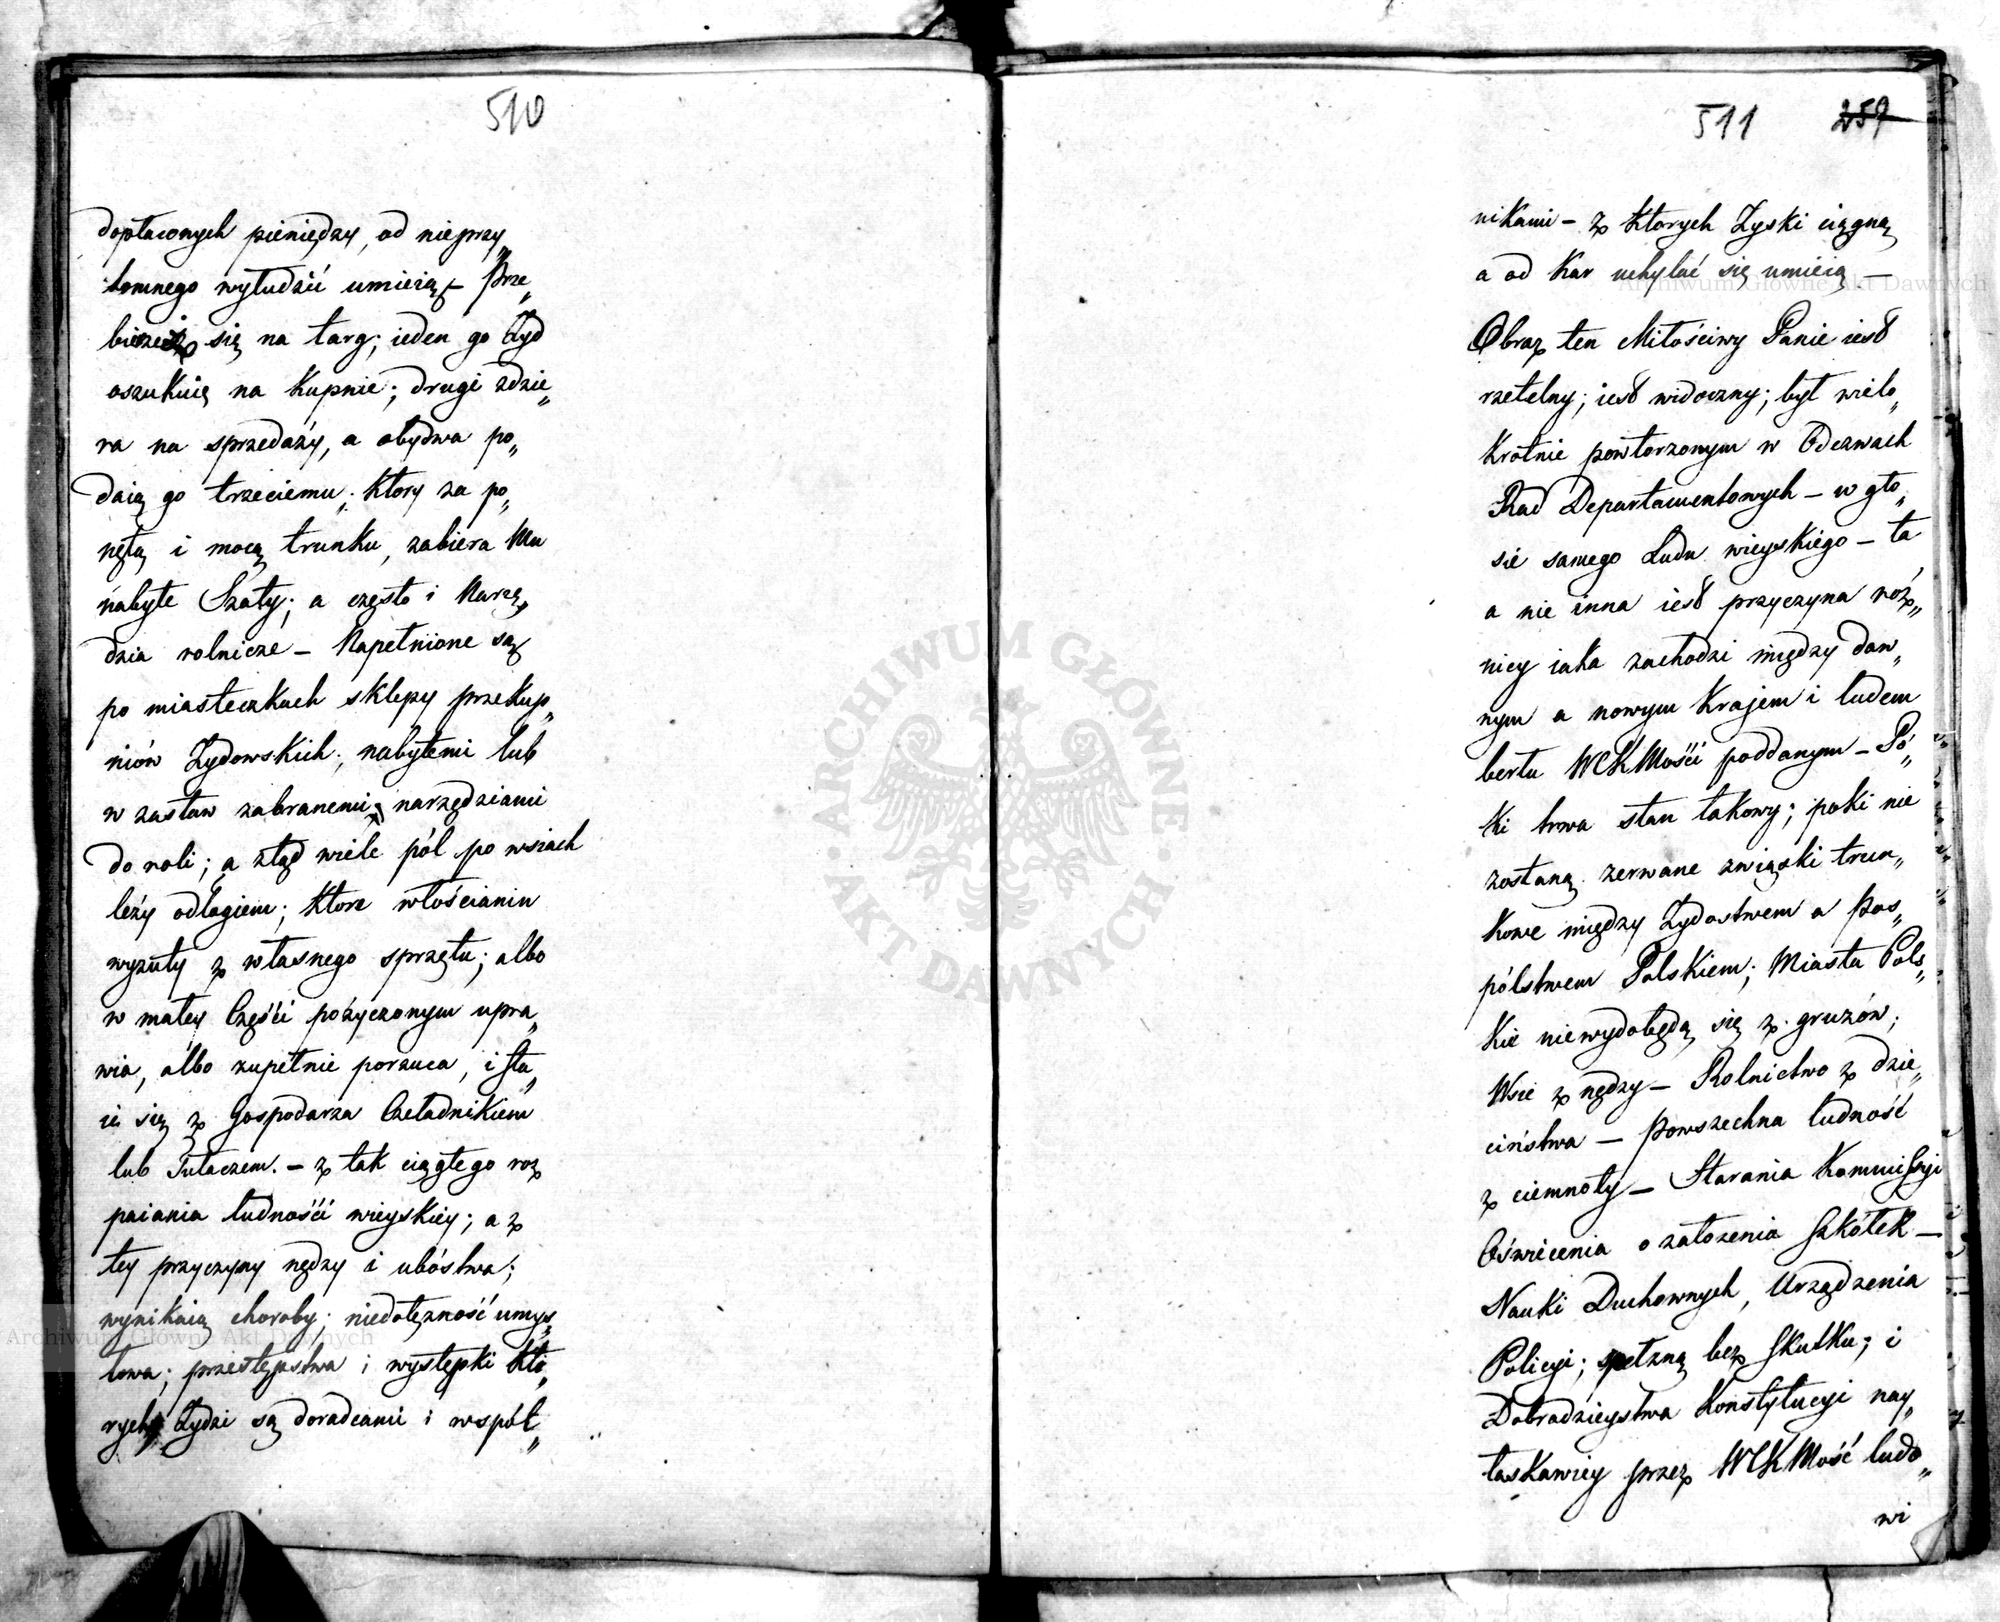 510
dopłaconych pieniędzy, od nieprzy„
tomnego wyłudzić umieią – Prze„
bierze się na targ; ieden go Żyd
oszukuię na kupnie; drugi zdzie„
ra na sprzedaży, a obydwa po„
daią go trzeciemu; który za po„
nętą i mocą trunku, zabiera Mu
nabyte Szaty; a często i Narzę„
dzia rolnicze – Napełnione są
po miasteczkach sklepy przekup„
niów Żydowskich; nabytemi lub
w zastaw zabranemi narzędziami
do roli; a ztąd wiele pól po wsiach
leży odłogiem; które włościanin
wyzuty z własnego sprzętu; albo
w małey Części pożyczonym upra„
wia, albo zupełnie porzuca, i sta„
ie się z Gospodarza Czeladnikiem
lub Tułaczem. – z tak ciągłego roz
paiania ludności wieyskiey; a z
tey przyczyny nędzy i ubóstwa;
wynikaią choroby; niedołężność umys„
łowa; przestępstwa i występki któ„
rych Żydzi są doradcami i współ„
511 257
nikami – z ktorych Zyski ciągną
a od Kar uchylać się umieią –
Obraz ten Miłościwy Panie iest
rzetelny; iest widoczny; był wielo„
krotnie powtorzonym w Odezwach
Rad Departamentowych – w gło„
sie samego Ludu wieyskiego – ta
a nie inna iest przyczyna róż„
nicy iaka zachodzi między daw„
nym a nowym Krajem i ludem
berłu WCKMości poddanym – Pó„
ki trwa stan takowy; poki nie
zostaną zerwane związki trun„
kowe między Żydostwem a Pos„
pólstwem Polskiem; Miasta Pols„
kie niewydobędą się z gruzów;
Wsie z nędzy – Rolnictwo z dzie„
ciństwa – Powszechna ludność
z ciemnoty – Starania Kommissyi
Oświecenia o założenia Szkółek –
Nauki Duchownych, Urządzenia
Policyi; spełzną bez skutku; i
Dobradzieystwa Konstytucyi nay„
łaskawiey przez WCKMość ludo„
wi
Archiwum Główne Akt Dawnych
Archiwum Główne Akt Dawnych
ARCHIWUM GŁÓWNE
· AKT DAWNYCH ·